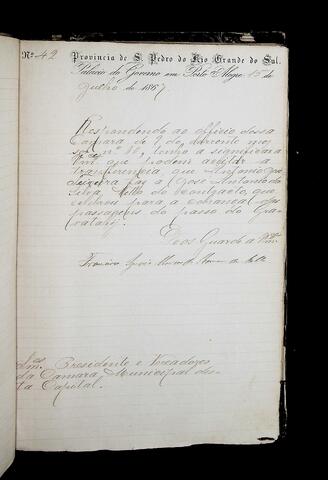 Nº 42 Provincia de S. Pedro do Rio Grande do Sul.
Palacio do Governo em Porto Alegre 15 de
Julho de 1867.
Respondendo ao officio dessa
Camara de 9 do corrente mez,
sob nº 88, tenho a significar a
Vmces que podem aceitar a
transferencia que Antonio José
Teixeira faz a José Antonio da
Silva Mello do contracto, que
celebrou para a cobrança das
passagens do passo do Gra-
vatahy.
Deos Guarde a Vmces
Francisco
Presidente e Vereadores
da Camara Municipal des-
ta Capital.